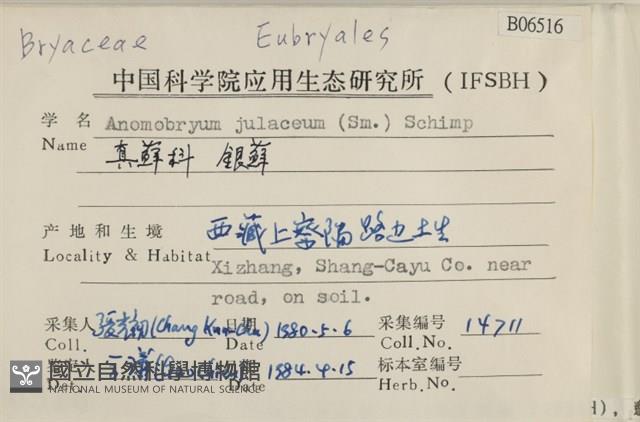 B06516
Bryaceae Eubryales
中国科学院应用生态研究所 (IFSBH)
学名 Anomobryum julaceum (Sm.) Schimp
Name 真蘚科 銀蘚
产地和生境 西藏上察隅路边土生
Locality & Habitat Xizhang, Shang-Cayu Co. near
road, on soil.
采集人 (Chang 日期 1980.5.6 采集编号 14711
Coll. Date Coll.No.
1984.4.15 标本室编号
Det. Date Herb.No.
國立自然科學博物館
NATIONAL MUSEUM OF NATURAL SCIENCE